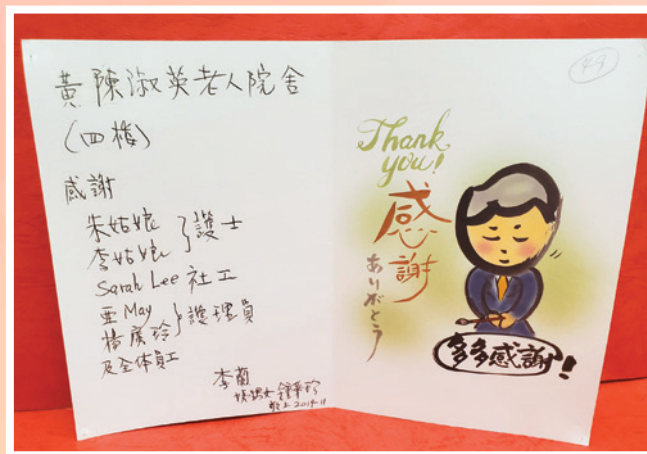 黃陳淑英老人院舍
(四樓)
感謝
朱姑娘
李姑娘 } 護士
Sarah Lee 社工
亜May
楊廣玲 } 護理員
及全体員工
李蘭
敬上 2019-11
49
Thank
you!
感謝
ありがとう
多多感謝!